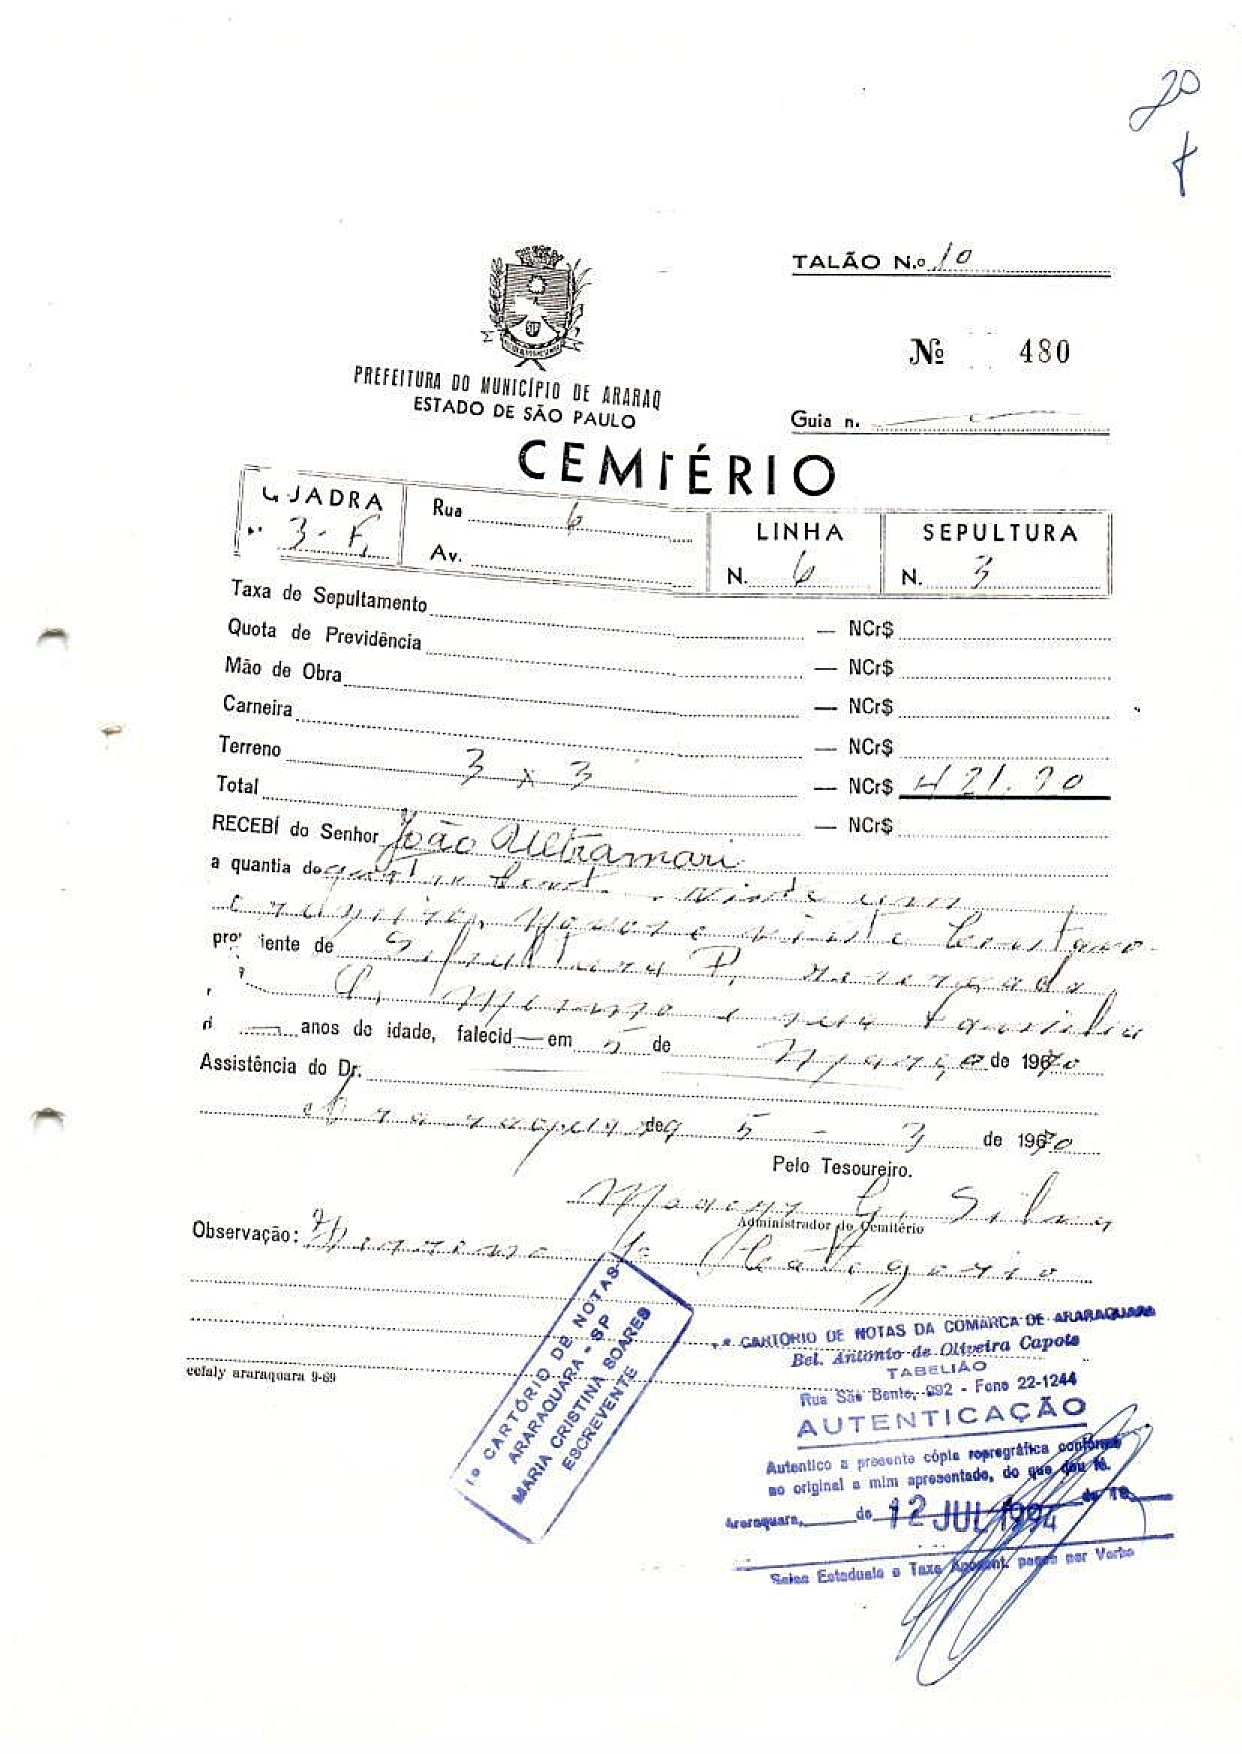 20
TALÃO N.o 10
No 480
PREFEITURA DO MUNICÍPIO DE ARARAQ
ESTADO DE SÃO PAULO
Guia n.
CEMITÉRIO
QUADRA Rua 6 LINHA SEPULTURA
3 - F Av. N. 6 N. 3
Taxa de Sepultamento — NCr$
Quota de Previdência — NCr$
Mão de Obra — NCr$
Carneira — NCr$
Terreno 3 x 3 — NCr$
Total — NCr$ 421.20
— NCr$
RECEBÍ do Senhor João Ultramari
a quantia de quatrocent. vinte um
cruzeiros, Novos e vinte Centavo
pro iente de Sepultura P.
P. Mesmo e sua familia
d — anos de idade, falecid — em 5 de Março de 1970
Assistência do Dr.
Araraquara de 5 - 3 de 1970
Pelo Tesoureiro.
Moacyr G. Silva
Administrador do Cemitério
Observação: Terreno 1a Categorio
cefaly araraquara 9-69
1º CARTÓRIO DE NOTAS
ARARAQUARA - SP
MARIA CRISTINA SOARES
ESCREVENTE
º CARTÓRIO DE NOTAS DA COMARCA DE ARARAQUARA
Bel. Antonio de Oliveira Capote
TABELIÃO
Rua São Bento, 992 - Fone 22-1244
AUTENTICAÇÃO
Autentico a presente cópia reprográfica conforme
ao original a mim apresentado, do que dou fé.
Araraquara, de 12 JUL 1994 de 19
Selos Estaduais e Taxa Aposent. pagos por Verba